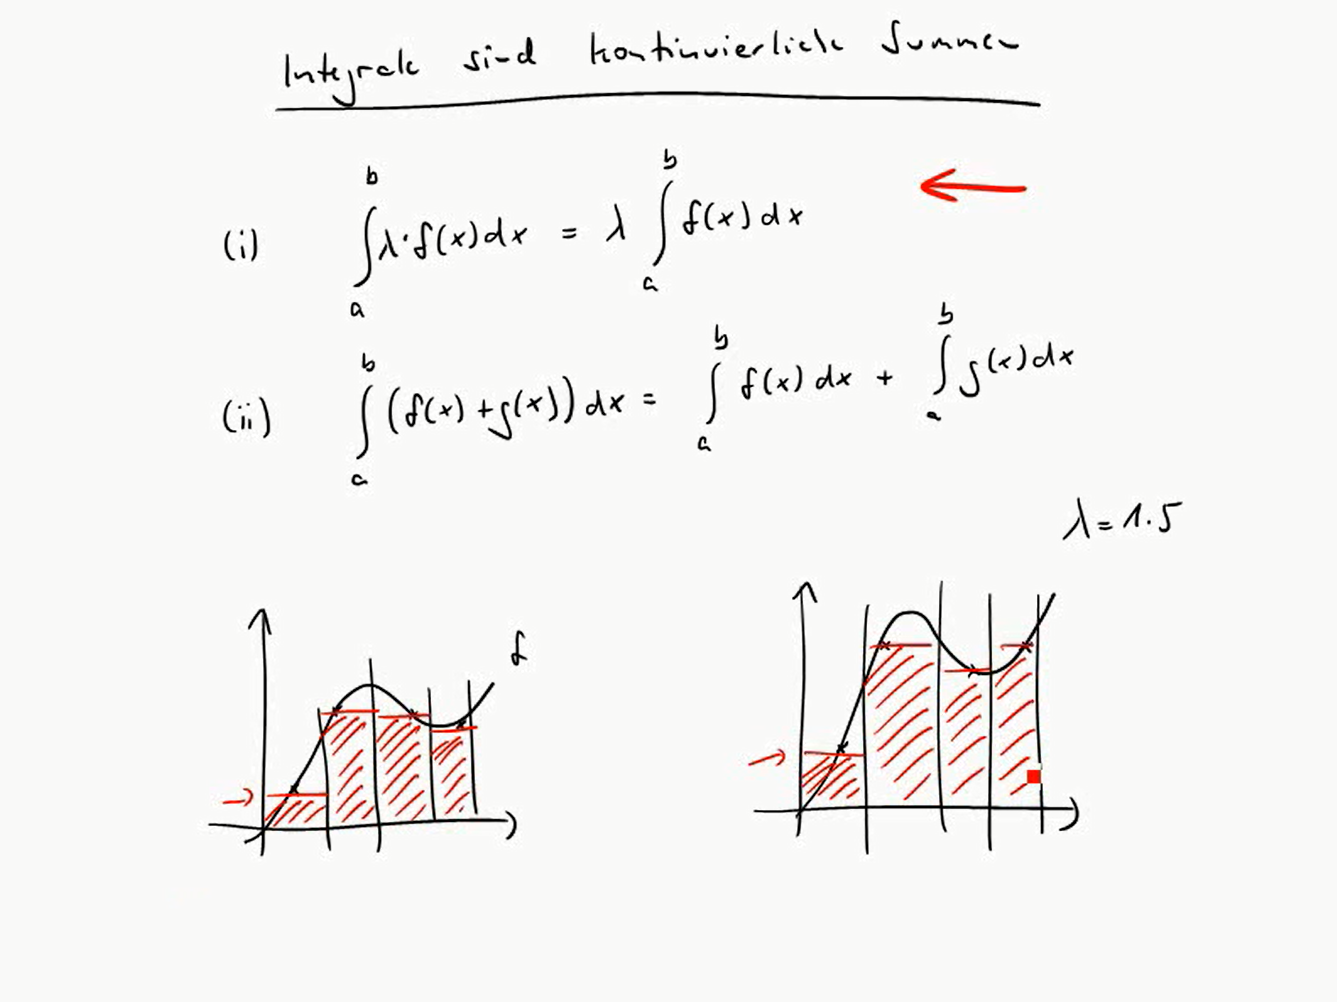 Integrale sind kontinuierliche Summen
(i) ∫_a^b λ·f(x)dx = λ ∫_a^b f(x)dx
(ii) ∫_a^b (f(x)+g(x))dx = ∫_a^b f(x)dx + ∫_a^b g(x)dx
λ=1.5
f